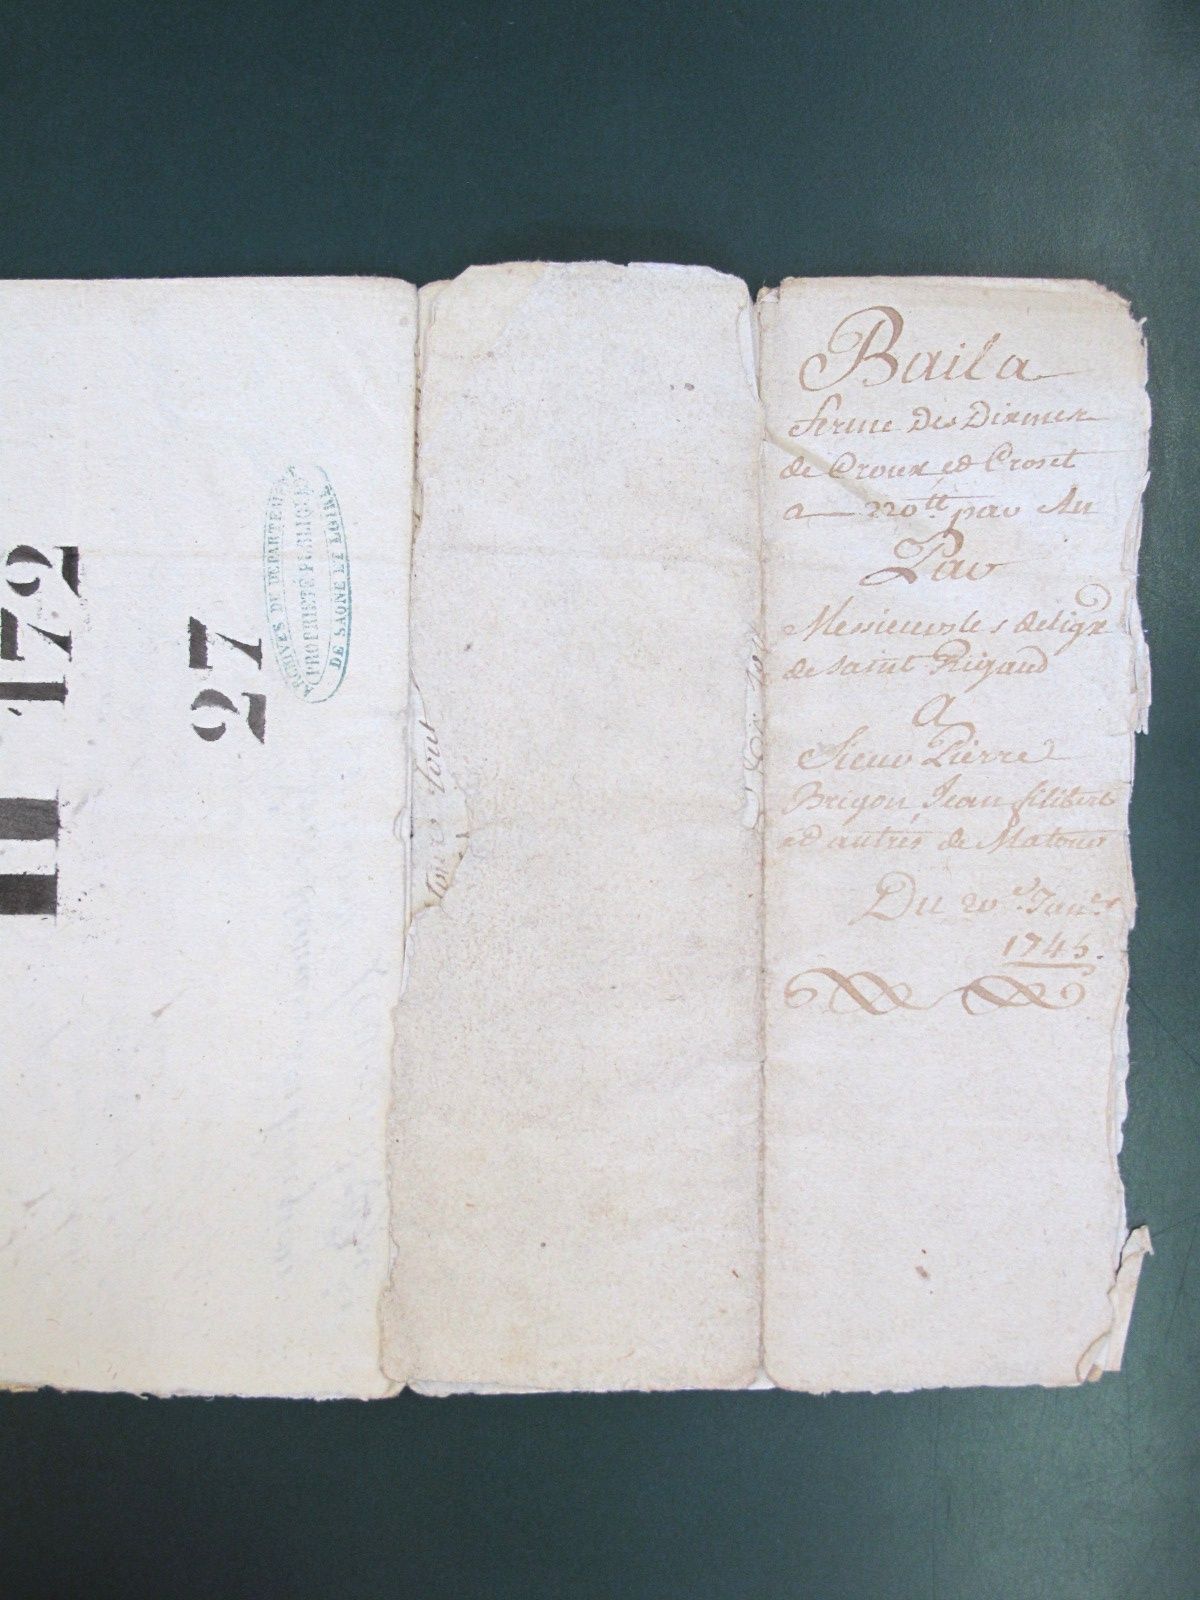 Bail a
ferme Des Dixmes
de Croux et Croset
a 220tt par An
Par
Messieurs les
de saint Rigaud
a
Sieur Pierre
Brigon, Jean filibert
et autres de Matour
Du 20e Janer
1745.
H 172
27
ARCHIVES DU DEPARTEMENT
PROPRIÉTÉ PUBLIQUE
DE SAONE ET LOIRE